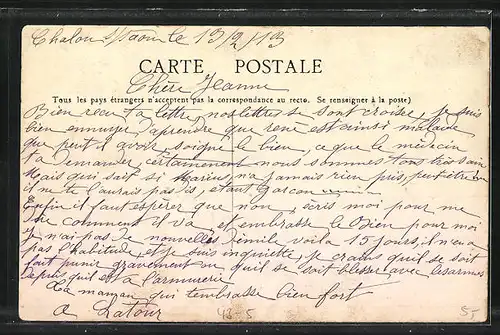 Chalon s/Saone le 13/2/13
CARTE POSTALE
Chère Jeanne
Tous les pays étrangers n'acceptent pas la correspondance au recto. Se renseigner à la poste)
Bien recu ta lettre nos lettres se sont croisée, je suis
bien ennuyée d'aprendre que rené est ainsi malade
que peut il avoir, soigne le bien, ce que le médecin
t'a demander, certainement nous sommes tous très sain
Mais qui sait si Marius, n'a jamais rien pris, peut être
il ne te l'aurais pas dis, étant garcon
Enfin il faut espérer que non, écris moi pour me
dire comment il va et embrasse le Bien pour moi
Je n'ai pas de nouvelles d'émile voila 15 jours, il n'en a
pas l'habitude, et je suis inquiette, je crains qu'il se soit
fait punir gravement ou qu'il se soit blesser avec les armes
depuis qu'il est a l'armurerie
Ta maman qui t'embrasse bien fort
a Latour
43-5